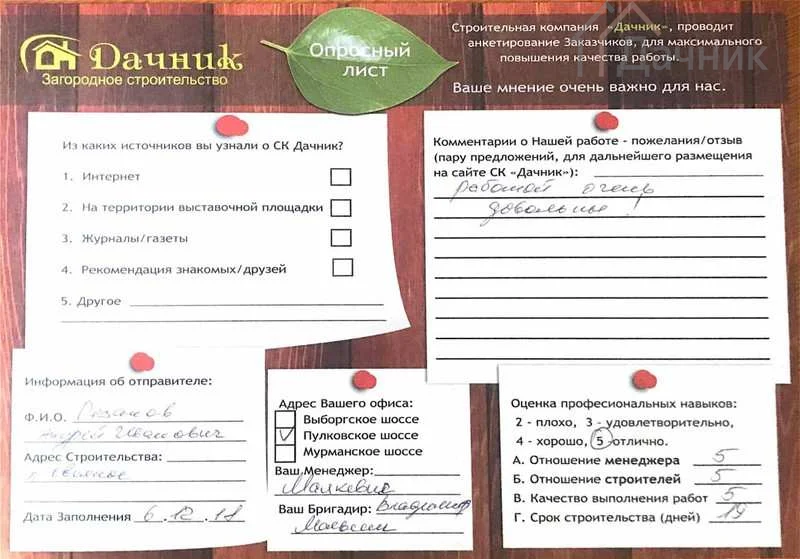 Дачник
Загородное строительство
Опросный
лист
Строительная компания «Дачник», проводит
анкетирование Заказчиков, для максимального
повышения качества работы.
Ваше мнение очень важно для нас.
Дачник
Из каких источников вы узнали о СК Дачник?
1. Интернет
2. На территории выставочной площадки
3. Журналы/газеты
4. Рекомендация знакомых/друзей
5. Другое
Комментарии о Нашей работе - пожелания/отзыв
(пару предложений, для дальнейшего размещения
на сайте СК «Дачник»):
работой очень
довольны!
Информация об отправителе:
Ф.И.О.
Андрей Иванович
Адрес Строительства:
Дата Заполнения 6.12.18
Адрес Вашего офиса:
Выборгское шоссе
Пулковское шоссе
Мурманское шоссе
Ваш Менеджер:
Малкевич
Ваш Бригадир: Владимир
Оценка професиональных навыков:
2 - плохо, 3 - удовлетворительно,
4 - хорошо, 5 -отлично.
А. Отношение менеджера 5
Б. Отношение строителей 5
В. Качество выполнения работ 5
Г. Срок строительства (дней) 19